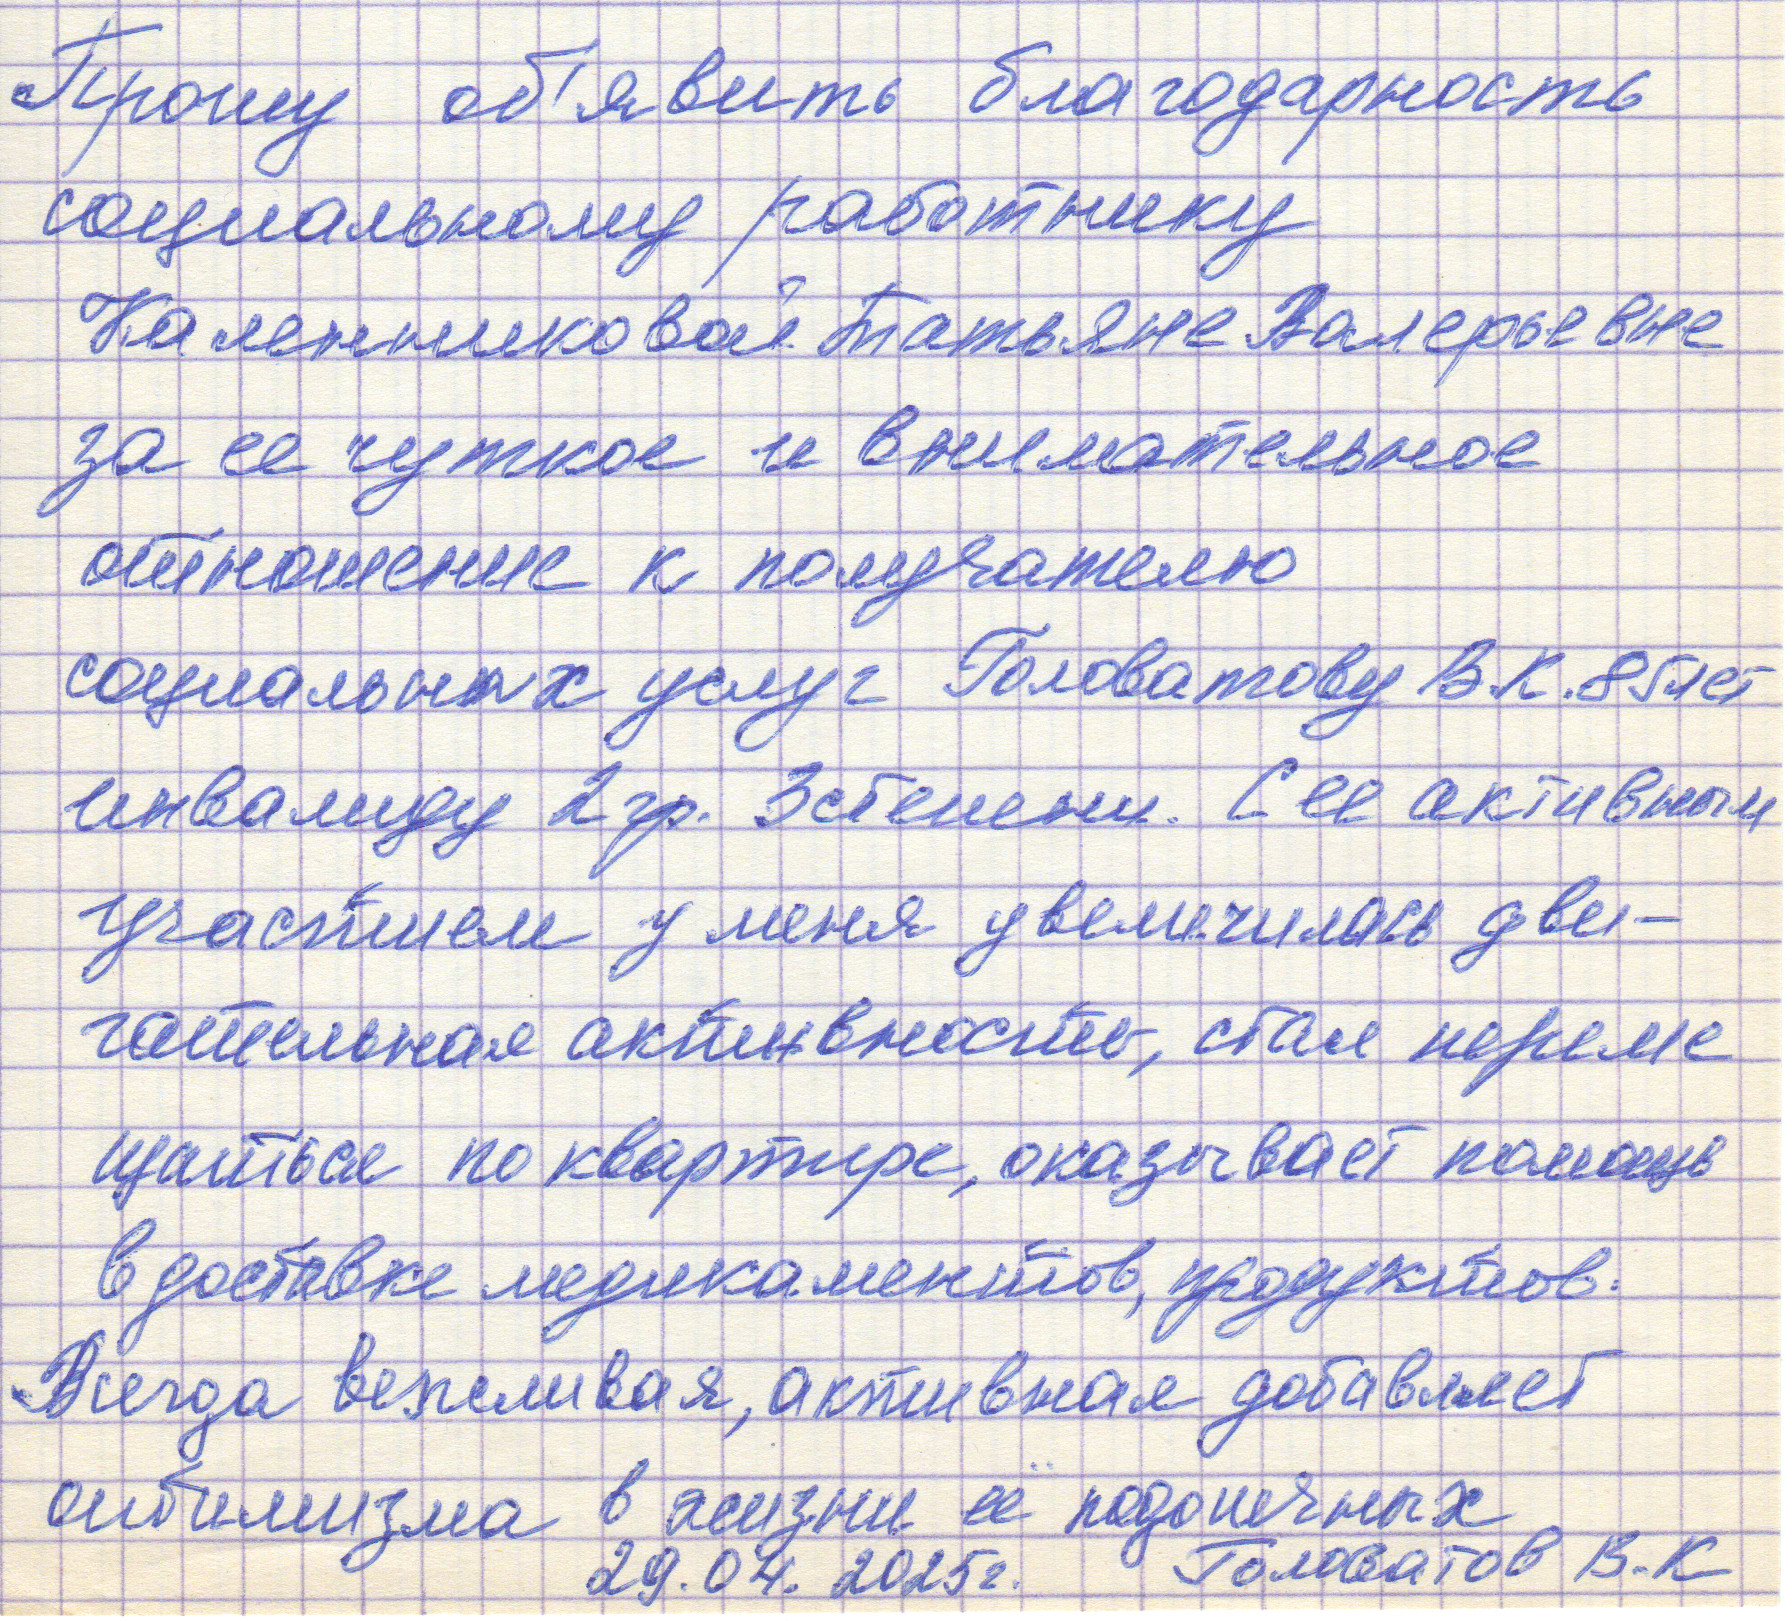 Прошу об'явить благодарность
социальному работнику
Каленниковой Татьяне Валерьевне
за ее чуткое и внимательное
отношение к получателю
социальных услуг Головатову В.К. 85лет
инвалиду 2 гр. 3 степени. С ее активным
участием у меня увеличилась дви-
гательная активность, стал переме
щаться по квартире, оказывает помощь
в доставке медикаментов, продуктов.
Всегда вежливая, активная добавляет
оптимизма в жизни её подопечных
29.04.2025г. Головатов В.К